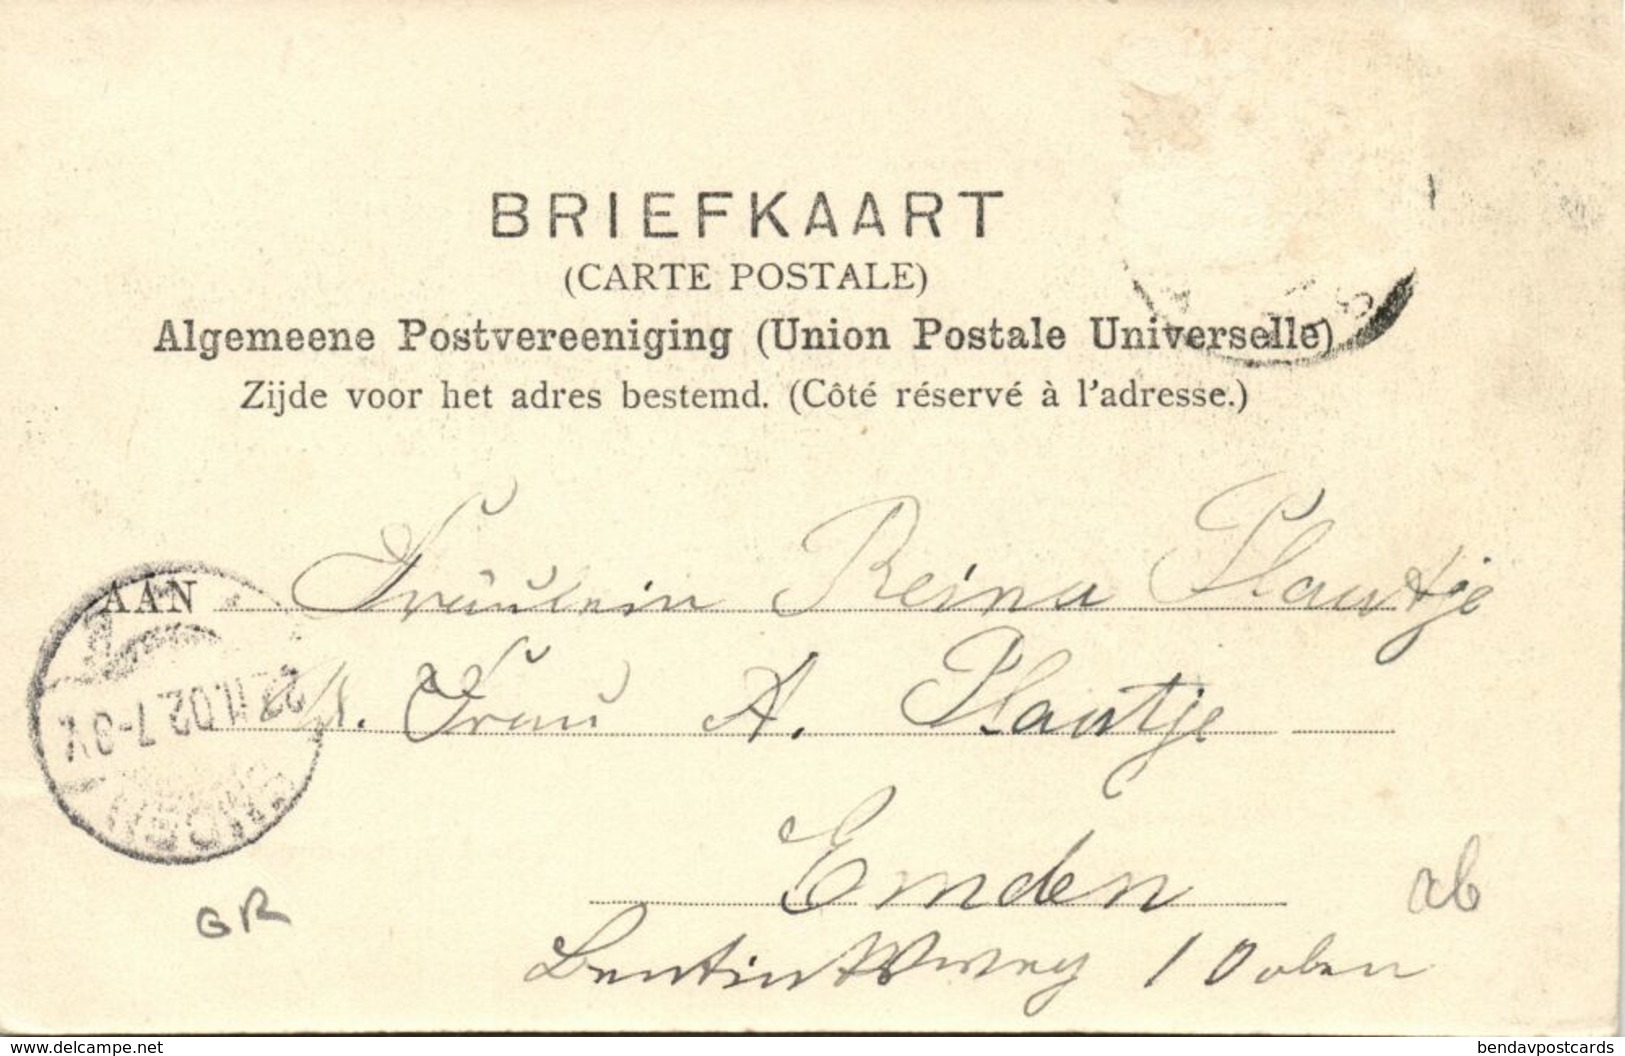 BRIEFKAART
(CARTE POSTALE)
Algemeene Postvereeniging (Union Postale Universelle)
Zijde voor het adres bestemd. (Côté réservé à l'adresse.)
AAN Fräulein Reina Plantje
Frau A. Plantje
Emden
1 Oben
EMDEN
.11.02.7-8V.
GR
ab
www.delcampe.net
bendavpostcards